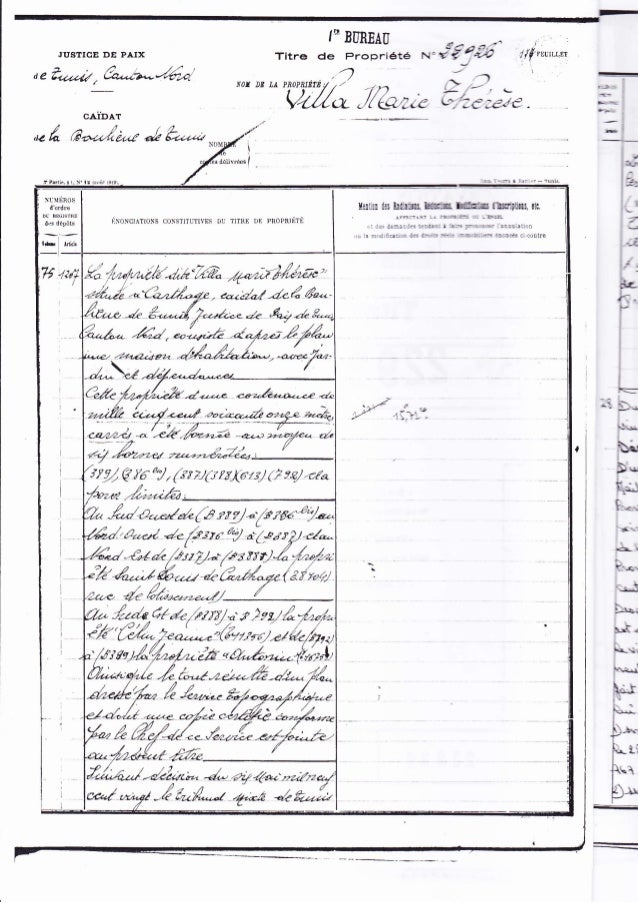 1er BUREAU
JUSTICE DE PAIX
Titre de Propriété N° 22926
FEUILLET
de Tunis, Canton Nord
NOM DE LA PROPRIÉTÉ
Villa Marie Thérèse.
CAÏDAT
de la Banlieue de Tunis
NOMBRE
de
copies délivrées
NUMÉROS
d'ordre
DU REGISTRE
des dépôts
Volume Article
ÉNONCIATIONS CONSTITUTIVES DU TITRE DE PROPRIÉTÉ
Mention des Radiations, Réductions, Modifications d'Inscriptions, etc.
AFFECTANT LA PROPRIÉTÉ OU L'USAGE
et des demandes tendant à faire prononcer l'annulation
ou la modification des droits réels immobiliers énoncés ci-contre
75 1207
La propriété dite "Villa Marie Thérèse"
située à Carthage, caïdat de la Ban-
lieue de Tunis, Justice de Paix de Tunis
Canton Nord, consiste d'après le plan
une maison d'habitation, avec jar-
din et dépendances
Cette propriété d'une contenance de
mille cinq cent soixante onze mètres
carrés a été bornée au moyen de
six bornes numérotées
(389), (386 bis), (387)(388)(613)(792) et a
pour limites:
Au Sud Ouest de (B389) à (B386 bis) au
Nord Ouest de (B386 bis) à (B387) et au
Nord Est de (B387) à (B388) la propri
été Saint Louis de Carthage
rue de lotissement)
Au Sud Est de (B388) à B792) la propri
été Jeanne" et de (B792)
à (B389) la propriété "Antonin"
Ainsi que le tout résulte d'un plan
dressé par le Service Topographique
et dont une copie certifiée conforme
par le Chef de ce Service est jointe
au présent titre
Suivant décision du six Mai mil neuf
cent vingt le Tribunal Mixte de Tunis
28